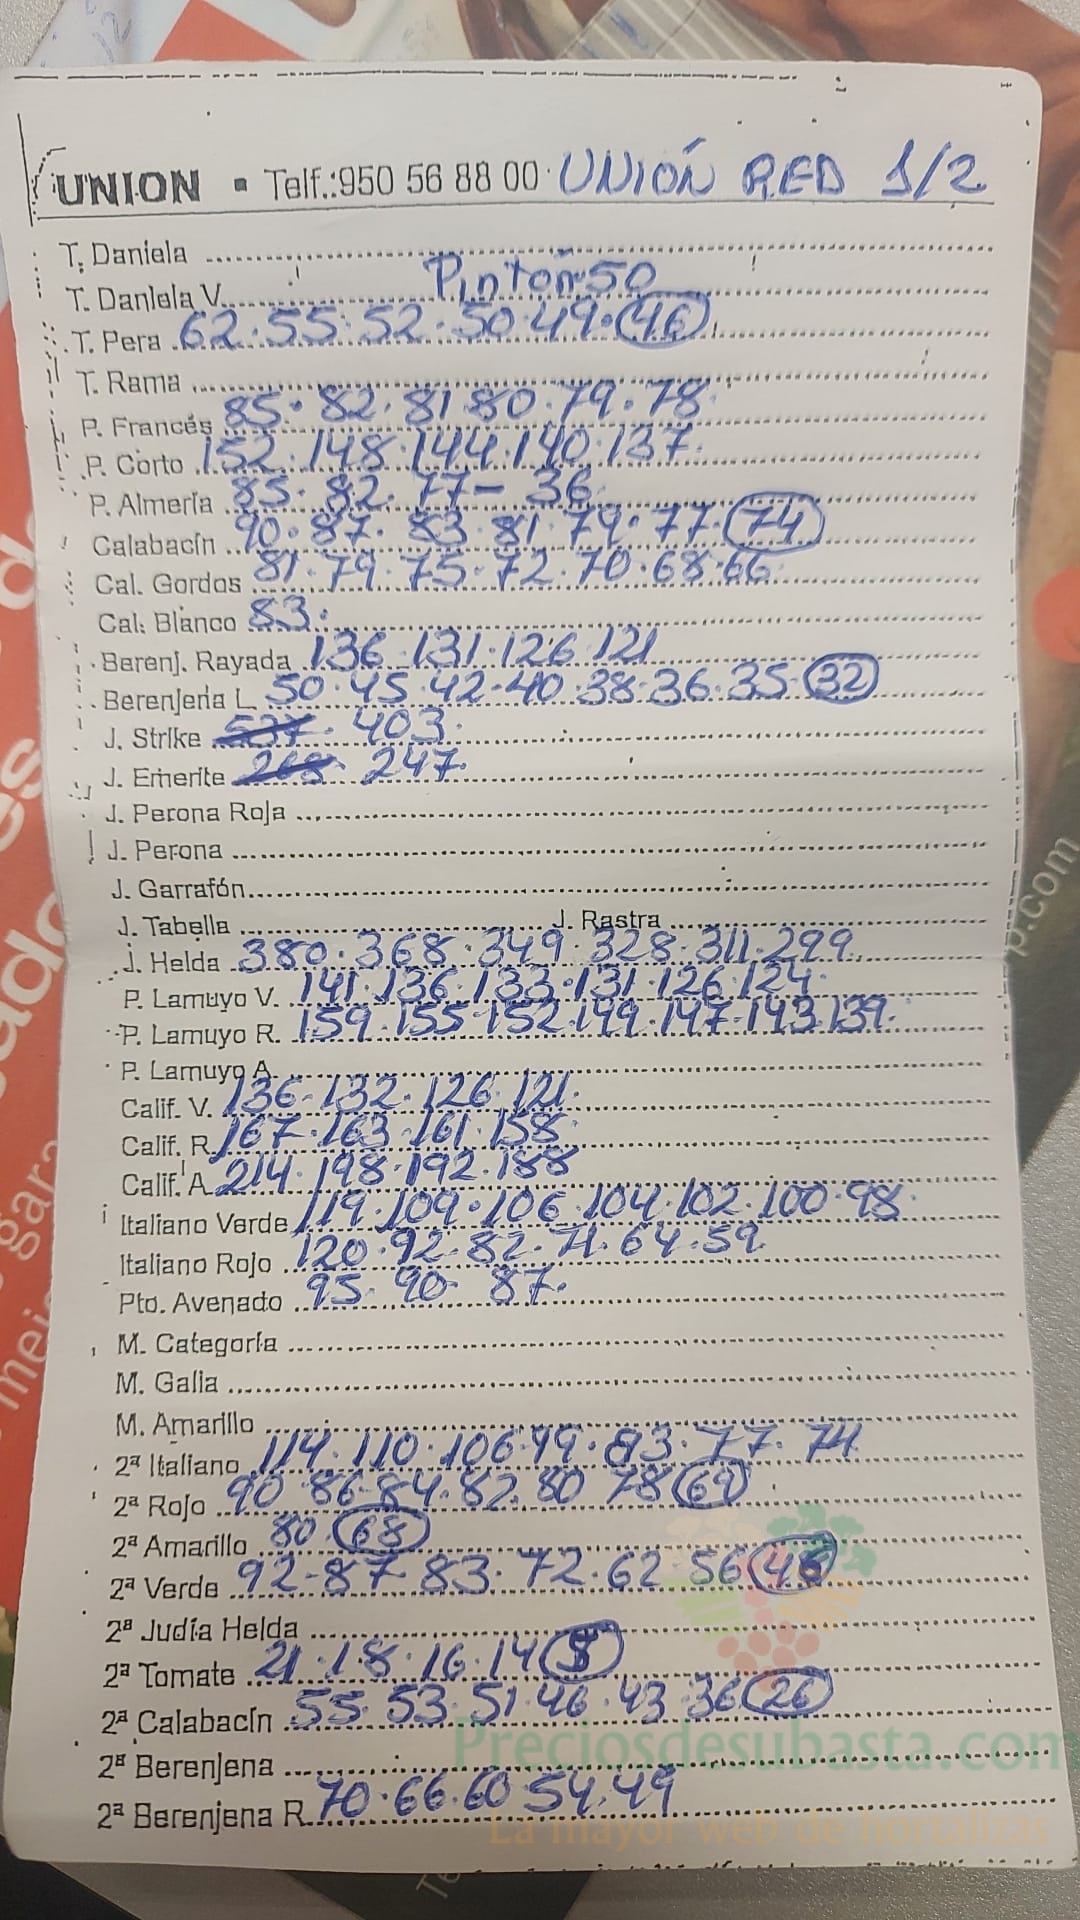 UNION ▪ Telf.:950 56 88 00 UNIÓN RED 1/2
T. Daniela
T. Daniela V. Pintón 50
T. Pera 62.55.52.50.49.46
T. Rama
P. Francés 85.82.81.80.79.78
P. Corto 152.148.144.140.137
P. Almería 85.82.77-36
Calabacín 90.87.83.81.79.77.74
Cal. Gordos 81.79.75.72.70.68.66
Cal. Blanco 83.
Berenj. Rayada 136.131.126.121
Berenjena L 50.45.42.40.38.36.35.32
J. Strike 403
J. Emerite 247
J. Perona Roja
J. Perona
J. Garrafón
J. Tabella J. Rastra
J. Helda 380.368.349.328.311.299
P. Lamuyo V. 141.136.133.131.126.124
P. Lamuyo R. 159.155.152.149.147.143.139
P. Lamuyo A.
Calif. V. 136.132.126.121
Calif. R. 167.163.161.158
Calif. A. 214.198.192.188
Italiano Verde 119.109.106.104.102.100.98
Italiano Rojo 120.92.82.71.64.59
Pto. Avenado 95.90.87.
M. Categoría
M. Galia
M. Amarillo
2ª Italiano 114.110.106.99.83.77.74
2ª Rojo 90.86.84.82.80.78
2ª Amarillo 80.68
2ª Verde 92-87.83.72.62.56
2ª Judía Helda
2ª Tomate 21.18.16.14
2ª Calabacín 55.53.51.46.43.36.26
2ª Berenjena
2ª Berenjena R. 70.66.60.54.49
Preciosdesubasta.com
La mayor web de hortalizas
p.com